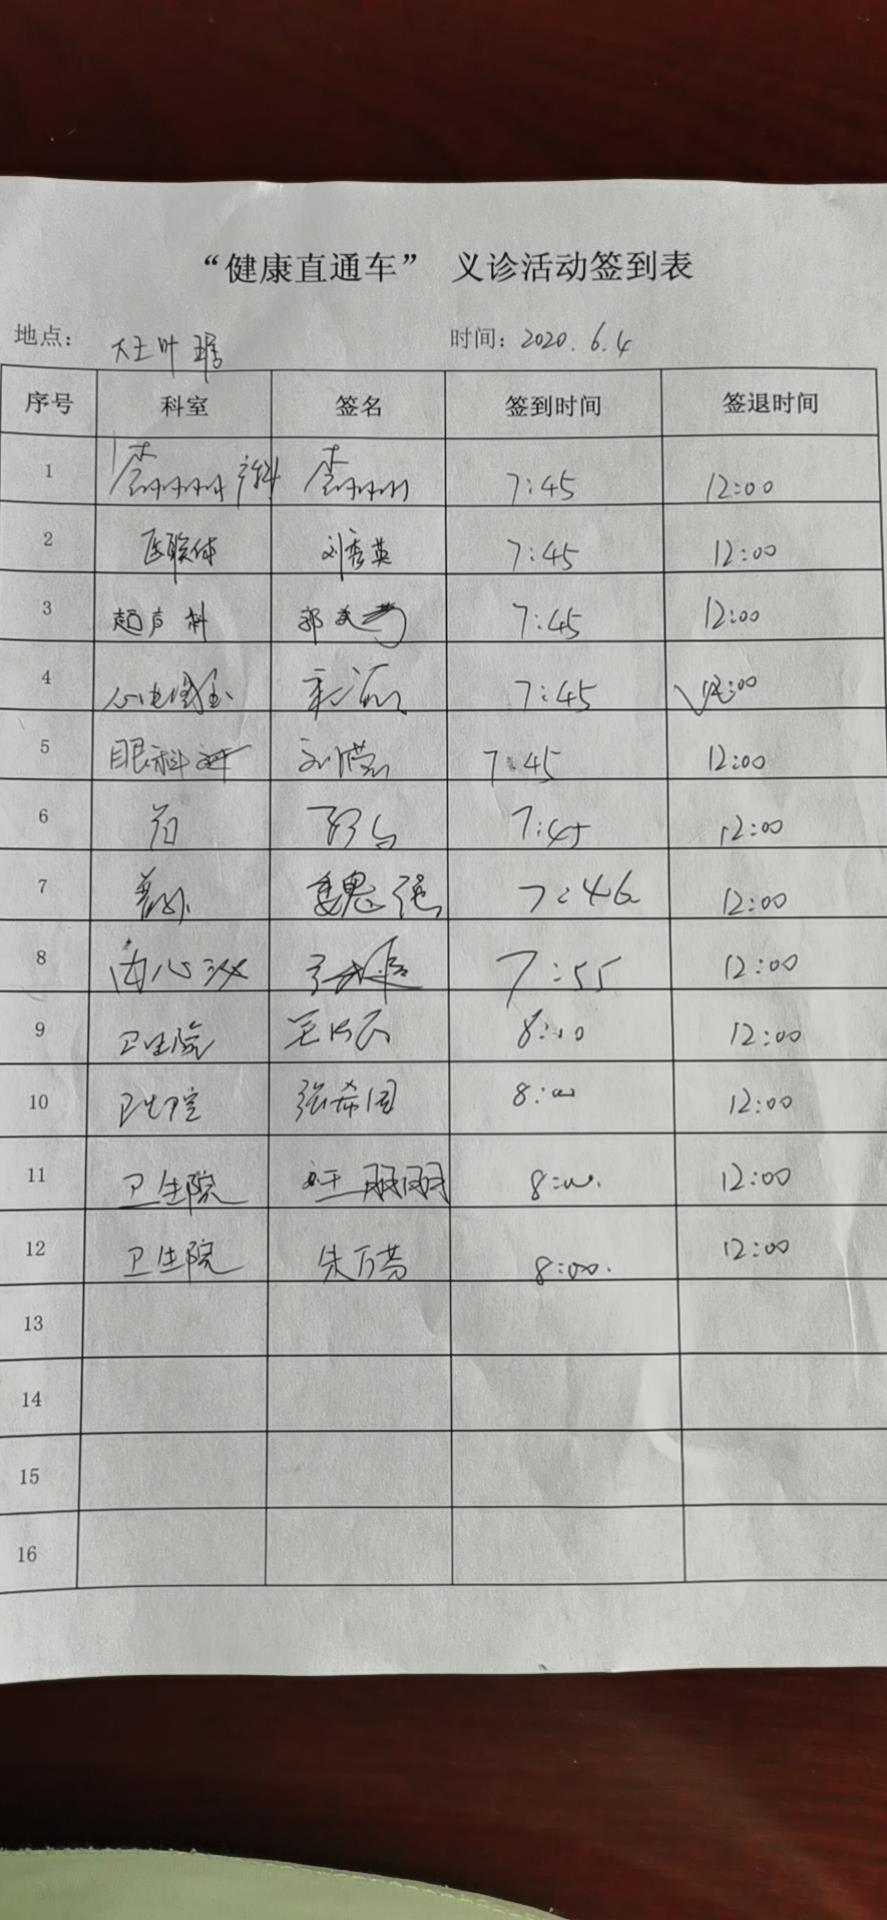 “健康直通车” 义诊活动签到表
地点： 大王叶 时间：2020.6.4
序号 科室 签名 签到时间 签退时间
1 产科 7:45 12:00
2 医联体 刘秀英 7:45 12:00
3 超声科 郭 7:45 12:00
4 心电图室 7:45 12:00
5 眼科 7:45 12:00
6 7:45 12:00
7 普外 魏强 7:46 12:00
8 7:55 12:00
9 卫生院 8:00 12:00
10 卫生院 张希国 8:00 12:00
11 卫生院 8:00. 12:00
12 卫生院 朱万芳 8:00. 12:00
13
14
15
16